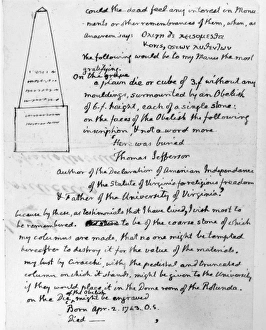 could the dead feel any interest in Monu-
ments or other remembrances of them, when, as
Anacreon says:
the following would be to my Manes the most
gratifying.
On the grave
a plain die or cube of 3.f without any
mouldings, surmounted by an Obelisk
of 6.f. height, each of a single stone:
on the faces of the Obelisk the following
inscription, & not a word more
Here was buried
Thomas Jefferson
Author of the Declaration of American Independance
of the Statute of Virginia for religious freedom
& Father of the University of Virginia.
because by these, as testimonials that I have lived, I wish most to
be remembered. to be of the coarse stone of which
my columns are made, that no one might be tempted
hereafter to destroy it for the value of the materials.
my bust by Ciracchi, with the pedestal and truncated
column on which it stands, might be given to the University
if they would place it in the Dome room of the Rotunda.
on the Die of the Obelisk might be engraved
Born Apr. 2. 1743. O.S.
Died